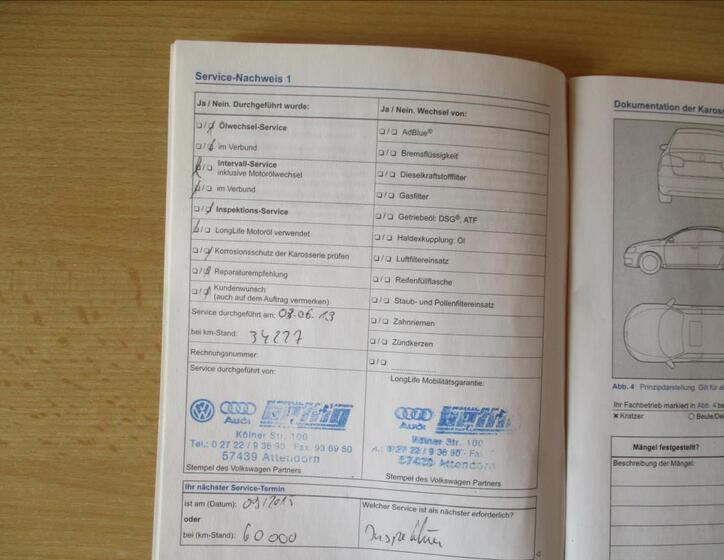 Service-Nachweis 1
Ja / Nein. Durchgeführt wurde:
Ja / Nein. Wechsel von:
Ölwechsel-Service
im Verbund
Intervall-Service
inklusive Motorölwechsel
im Verbund
Inspektions-Service
LongLife Motoröl verwendet
Korrosionsschutz der Karosserie prüfen
Reparaturempfehlung
Kundenwunsch
(auch auf dem Auftrag vermerken)
Service durchgeführt am: 03.06.13
bei km-Stand: 34227
Rechnungsnummer:
AdBlue®
Bremsflüssigkeit
Dieselkraftstofffilter
Gasfilter
Getriebeöl: DSG®, ATF
Haldexkupplung: Öl
Luftfiltereinsatz
Reifenfüllflasche
Staub- und Pollenfiltereinsatz
Zahnriemen
Zündkerzen
Service durchgeführt von:
Audi
Kölner Str. 100
Tel.: 0 27 22 / 9 36 90 Fax 93 69 50
57439 Attendorn
Stempel des Volkswagen Partners
LongLife Mobilitätsgarantie:
Audi
Kölner Str. 100
0 27 22 / 9 36 90 Fax
57439 Attendorn
Stempel des Volkswagen Partners
Ihr nächster Service-Termin
ist am (Datum): 09/2015
oder
bei (km-Stand): 60000
Welcher Service ist als nächster erforderlich?
Inspektion
Dokumentation der Kaross
Abb. 4 Prinzipdarstellung. Gilt für
Ihr Fachbetrieb markiert in Abb. 4 be
Kratzer
Beule/De
Mängel festgestellt?
Beschreibung der Mängel: